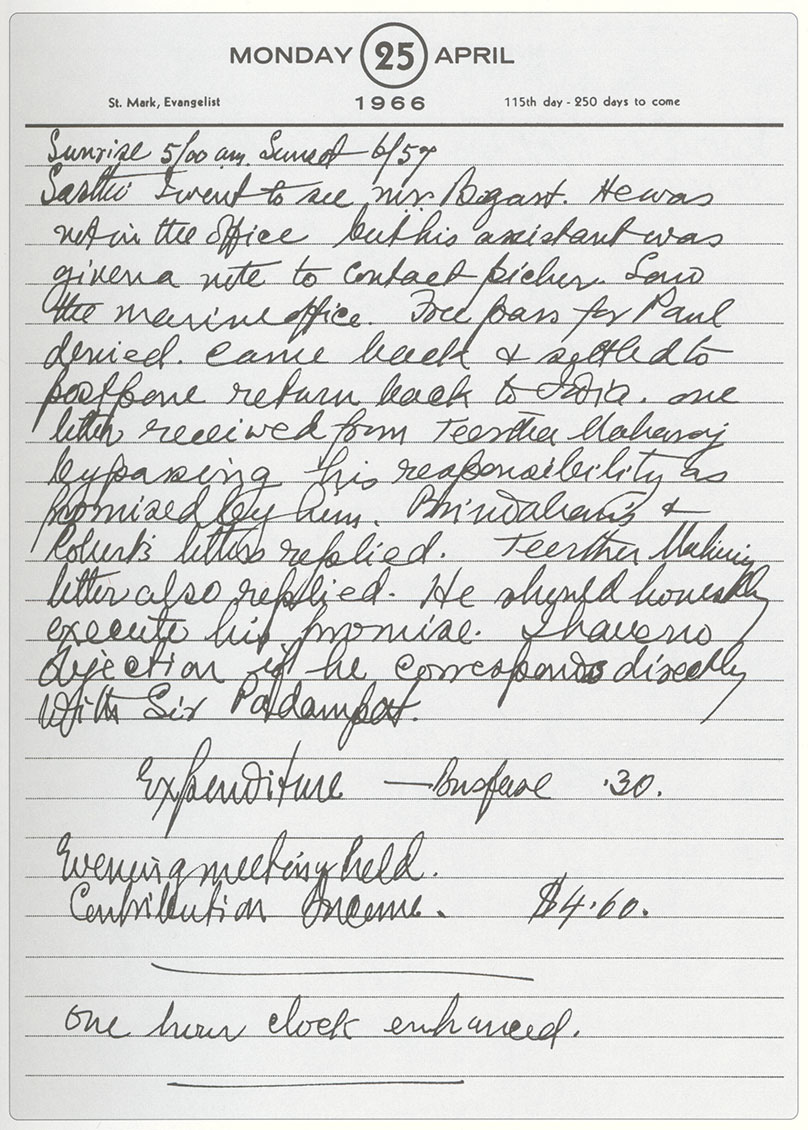 MONDAY 25 APRIL
St. Mark, Evangelist 1966 115th day - 250 days to come
Sunrise 5/00 am. Sunset 6/57
I went to see Mr. Bogart. He was
not in the office but his assistant was
given a note to contact picher. Saw
the marine office. Free pass for Paul
denied. Came back & settled to
postpone return back to India. one
letter received from Teertha Maharaj
bypassing his responsibility as
promised by him. &
Robert's letters replied. Teertha Maharaj
letter also replied. He should honestly
execute his promise. I have no
objection if he corresponds directly
with Sir Padampat.
Expenditure — Busfare .30.
Evening meeting held.
Contribution Income. $4.60.
one hour clock enhanced.